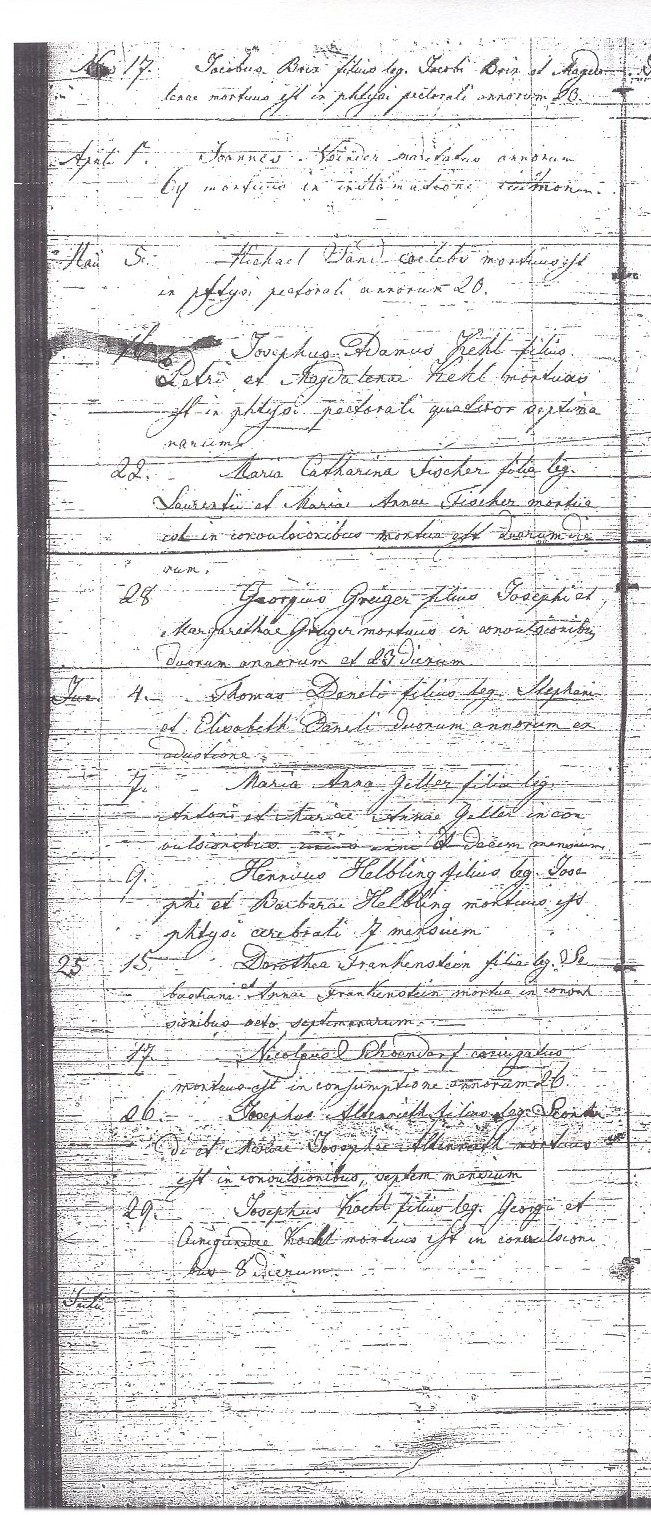 17. Jacobus Brix filius leg. Jacobi Brix et Magda
lenae mortuus est in phtysi pectorali annorum 20.
April 1. Joannes maritatus annorum
64 mortuus in inflamatione
Maii 5. Michael Sand coelebs mortuus est
in phtysi pectorali annorum 20.
Josephus Adamus Kehl filius
Petri et Magdalenae Kehl mortuus
est in phtysi pectorali quatuor septima
narum
22. Maria Catharina Fischer filia leg.
Laurentii et Mariae Annae Fischer mortua
est in convulsionibus mortua est duorum die
rum.
28 Georgius Greiger filius Josephi et
Margarethae Greiger mortuus in convulsionibus
duorum annorum et 23 dierum
Jun. 4. Thomas Daneli filius leg. Stephani
et Elisabeth Daneli duorum annorum ex
adustione
7. Maria Anna Geller filia leg.
Antoni et Mariae Annae Geller in con
vulsionibus unius anni et decem mensium
9. Henricus Helbling filius leg. Jose
phi et Barbarae Helbling mortuus est
phtysi cerebrali 7 mensium
25 15. Dorothea Frankenstein filia leg. Se
bastiani et Annae Frankenstein mortua in convul
sionibus octo septimanarum.
17. Nicolaus Schoendorf coniugatus
mortuus est in consumptione annorum 26
26. Josephus Altenrieth filius leg.
di et Mariae Josephae Altenrieth mortuus
est in convulsionibus, septem mensium
29. Josephus Kochl filius leg. Georgii et
Cunigundae Kochl mortuus est in convulsioni
bus 8 dierum.